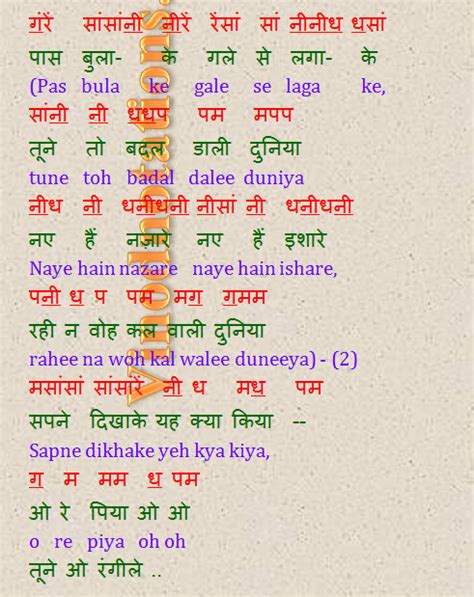 गंरें सांसांनी नीरें रेंसां सां नीनीध धसां
पास बुला- के गले से लगा- के
(Pas bula ke gale se laga ke,
सांनी नी धधप पम मपप
तूने तो बदल डाली दुनिया
tune toh badal dalee duniya
नीध नी धनीधनी नीसां नी धनीधनी
नए हैं नज़ारे नए हैं इशारे
Naye hain nazare naye hain ishare,
पनी ध प पम मग गमम
रही न वोह कल वाली दुनिया
rahee na woh kal walee duneeya) - (2)
मसांसां सांसांरें नी ध मध पम
सपने दिखाके यह क्या किया --
Sapne dikhake yeh kya kiya,
ग म मम ध पम
ओ रे पिया ओ ओ
o re piya oh oh
तूने ओ रंगीले ..
Vinodnotations.